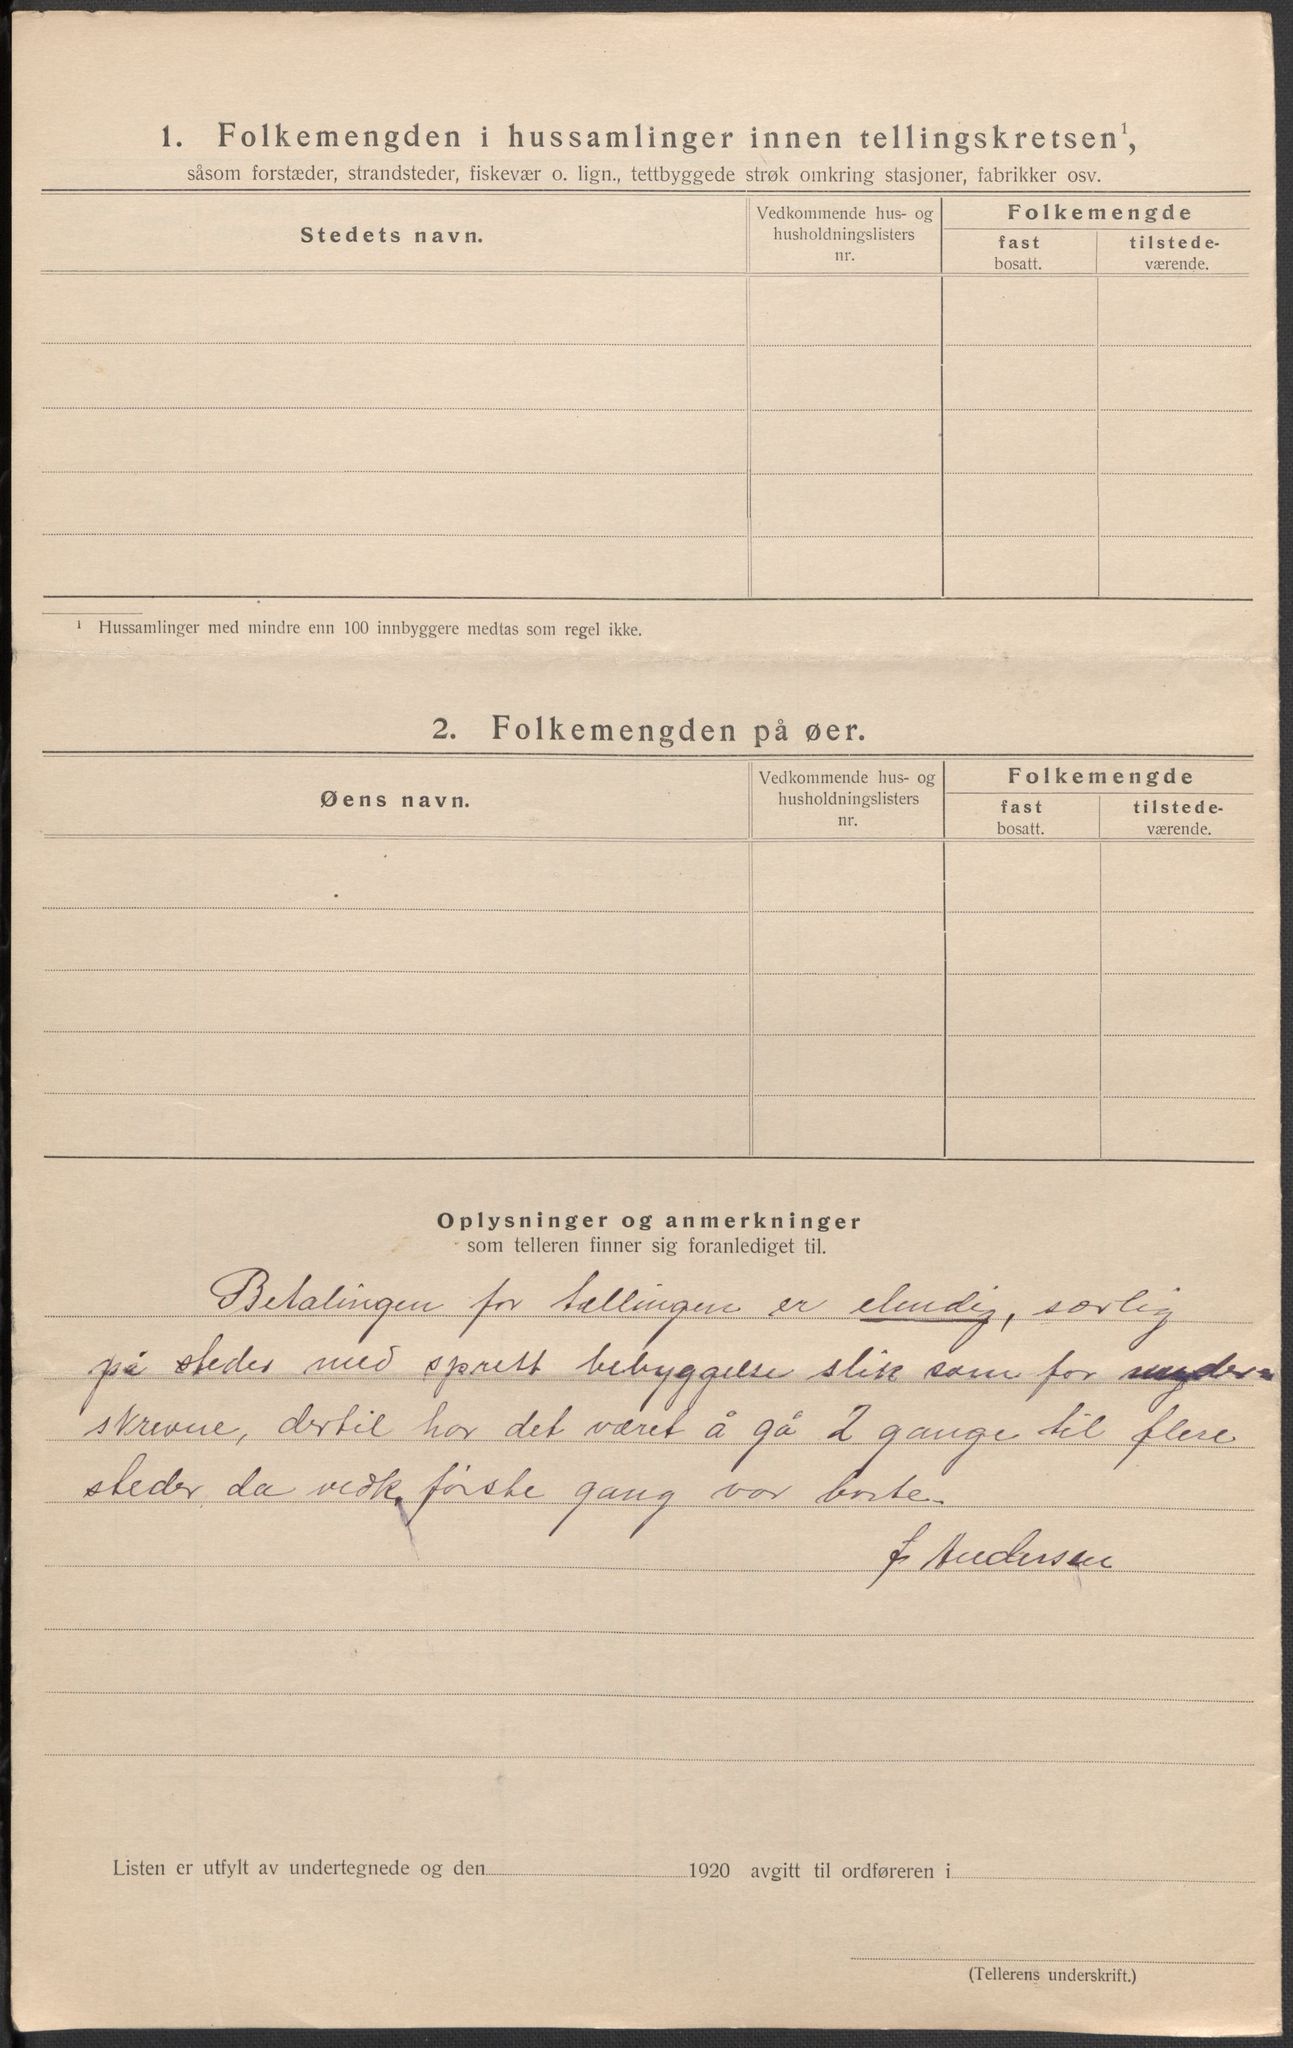 1. Folkemengden i hussamlinger innen tellingskretsen¹,
såsom forstæder, strandsteder, fiskevær o. lign., tettbyggede strøk omkring stasjoner, fabrikker osv.
Stedets navn.
Vedkommende hus- og
husholdningslisters
nr.
Folkemengde
fast
bosatt.
tilstede-
værende.
¹ Hussamlinger med mindre enn 100 innbyggere medtas som regel ikke.
2. Folkemengden på øer.
Øens navn.
Vedkommende hus- og
husholdningslisters
nr.
Folkemengde
fast
bosatt.
tilstede-
værende.
Oplysninger og anmerkninger
som telleren finner sig foranlediget til.
Betalingen for tællingen er elendig, særlig
på steder med sprett bebyggelse slik som for
skrevne, dertil har det været å gå 2 gange til flere
steder, da vedk. første gang var borte.
J Andersen
Listen er utfylt av undertegnede og den 1920 avgitt til ordføreren i
(Tellerens underskrift.)